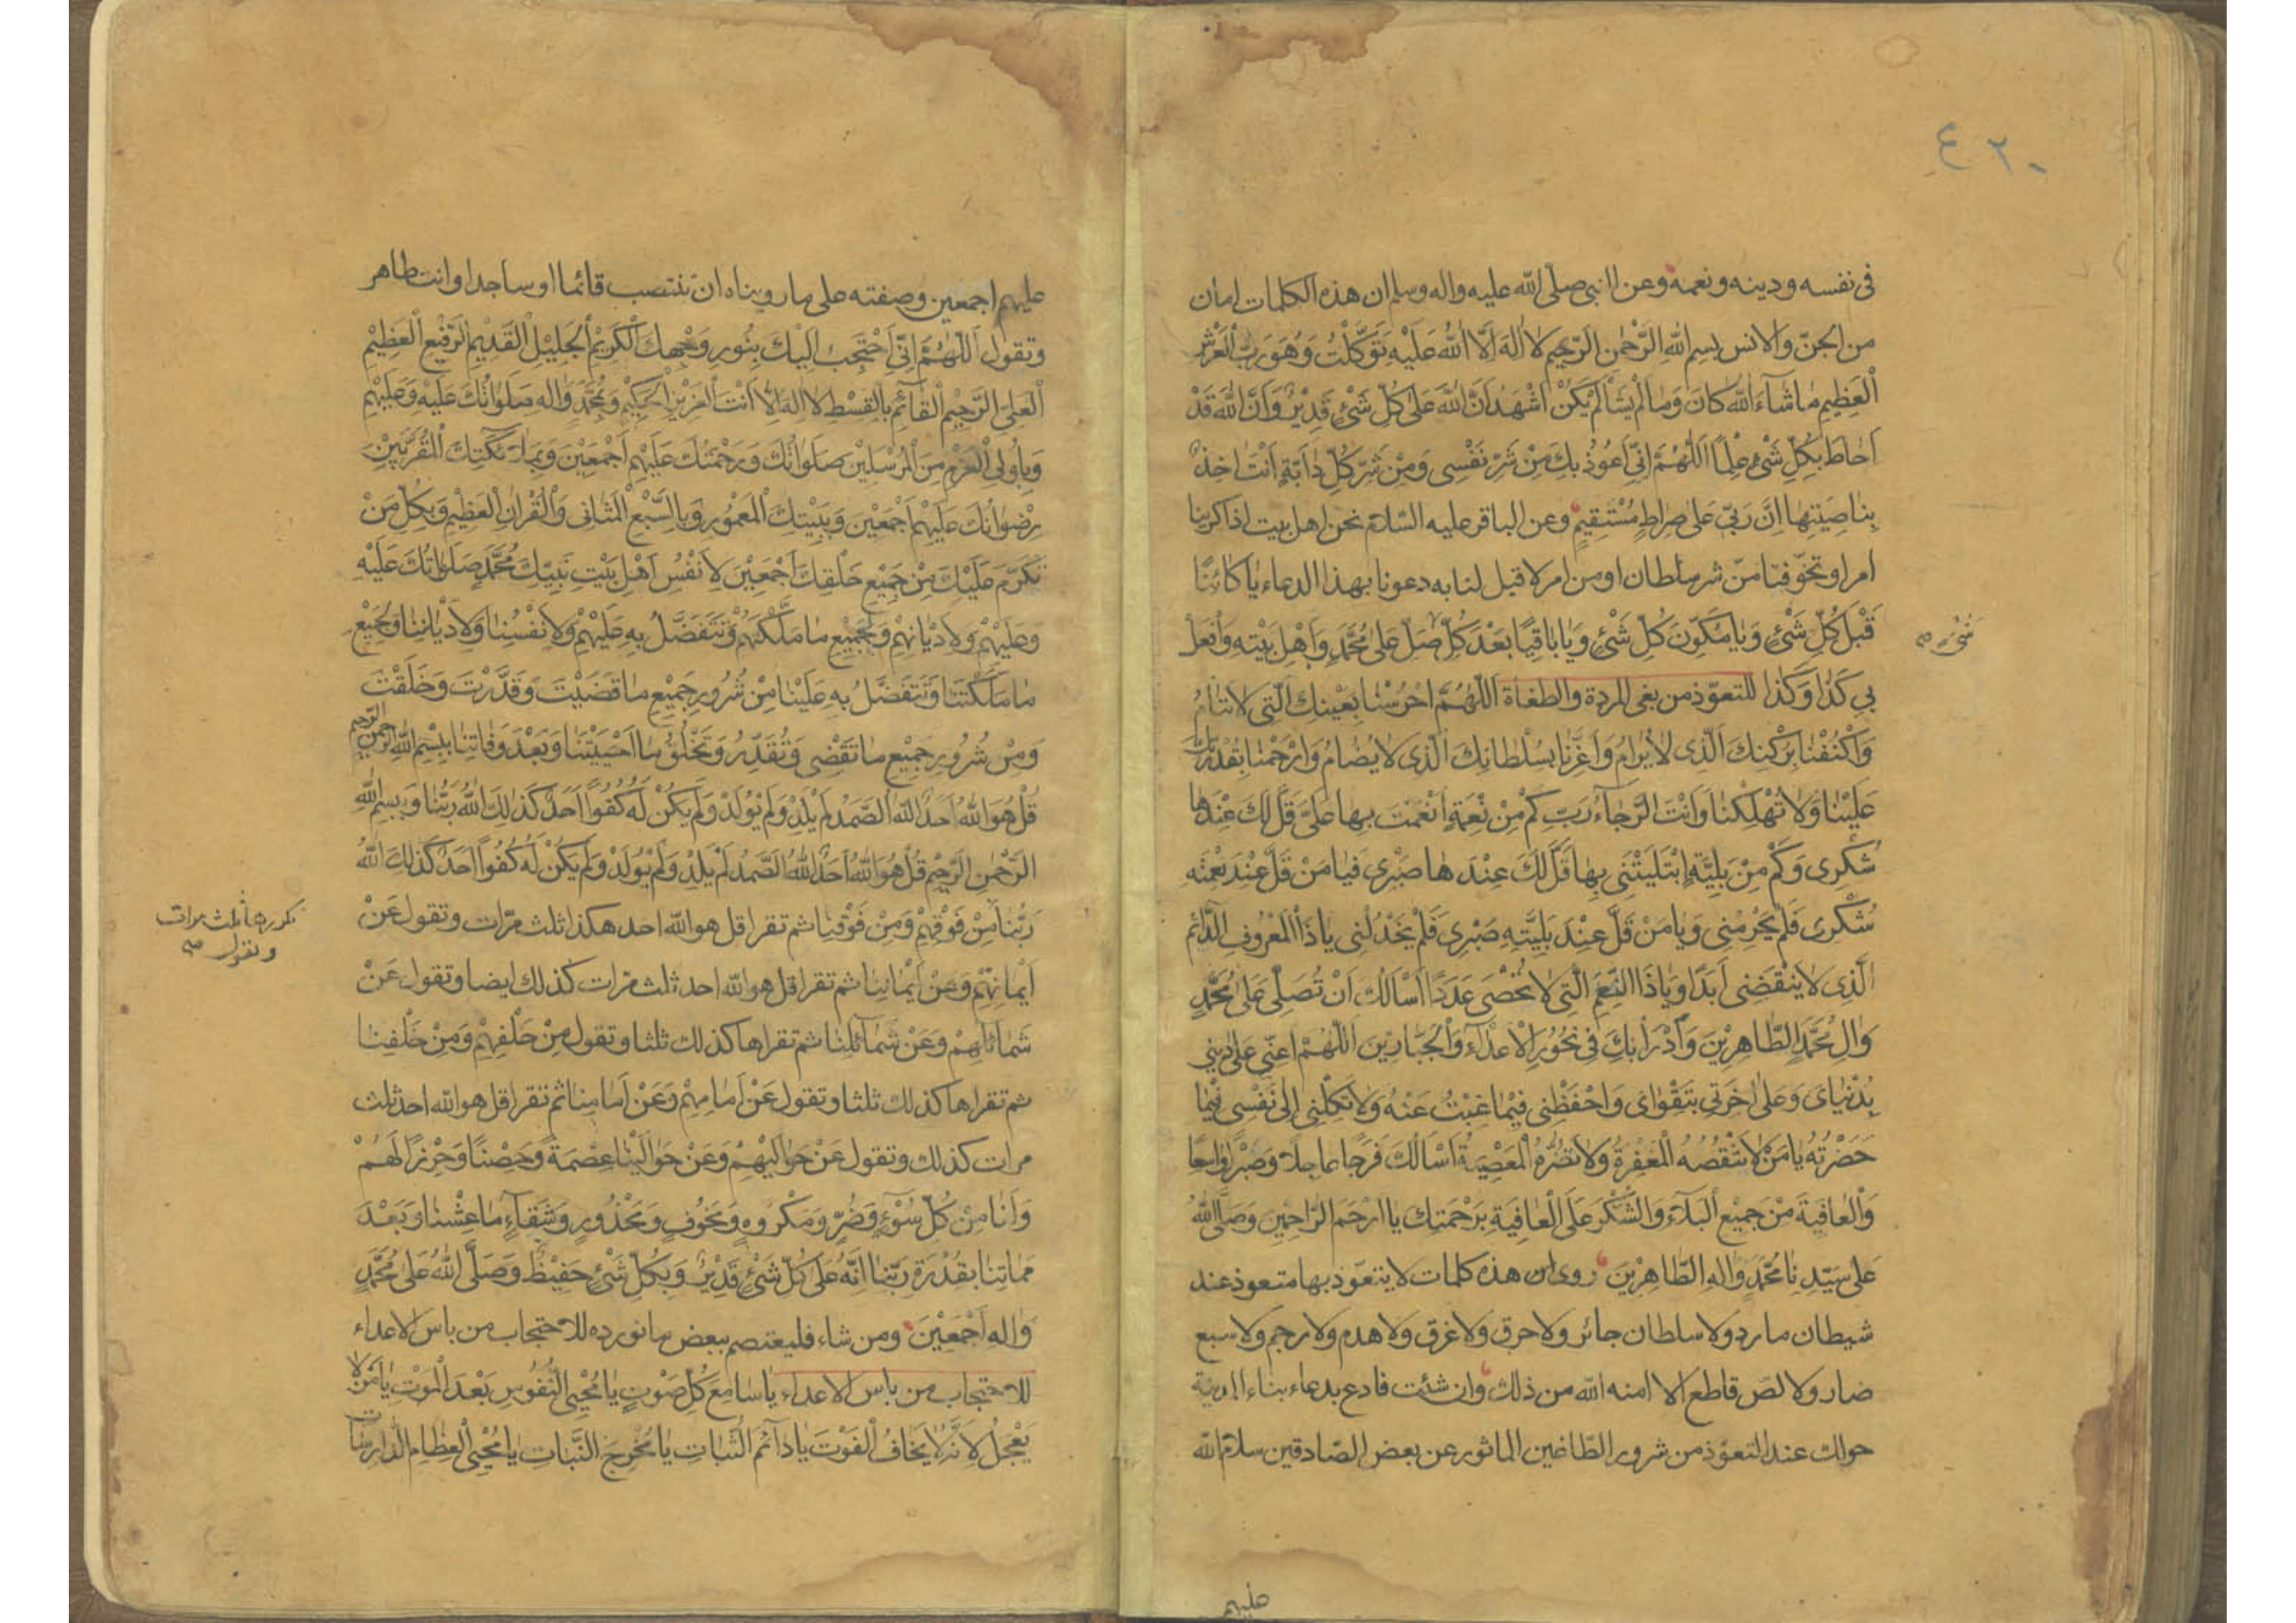 ٤٢٠
فى نفسه ودينه ونعمه وعن النبى صلّى الله عليه واله وسلم ان هذه الكلمات امان
من الجنّ والانس بِسِمِ اللهِ الرَّحْمٰنِ الرَّحِيمِ لَا اِلٰهَ اِلَّا اللهُ عَلَيْهِ تَوَكَّلْتُ وَهُوَ رَبُّ الْعَرْشِ
الْعَظِيمِ مٰا شٰاءَ اللهُ كٰانَ وَمٰا لَمْ يَشَأْ لَمْ يَكُنْ اَشْهَدُ اَنَّ اللهَ عَلٰى كُلِّ شَىْءٍ قَدِيْرٌ وَاَنَّ اللهَ قَدْ
اَحٰاطَ بِكُلِّ شَىْءٍ عِلْمًا اَللّٰهُمَّ اِنِّى اَعُوذُ بِكَ مِنْ شَرِّ نَفْسِى وَمِنْ شَرِّ كُلِّ دٰابَّةٍ اَنْتَ اٰخِذٌ
بِنٰاصِيَتِهٰا اِنَّ رَبِّى عَلٰى صِرٰاطٍ مُسْتَقِيمٍ وعن الباقر عليه السّلام نحن اهل بيت اذا كربنا
امر او تخوّفنا منّ شر سلطان او من امر لا قبل لنا به دعونا بهذا الدعاء يٰا كٰائِنًا
قَبْلَ كُلِّ شَىْءٍ وَيٰا مُكَوِّنَ كُلِّ شَىْءٍ وَيٰا بٰاقِيًا بَعْدَ كُلِّ صَلِّ عَلٰى مُحَمَّدٍ وَاَهْلِ بَيْتِهِ وَافْعَلْ
شىء صح
بِي كَذٰا وَكَذٰا للتعوّذ من بغى المردة والطغاة اَللّٰهُمَّ احْرُسْنٰا بِعَيْنِكَ الَّتِى لَا تَنٰامُ
وَاكْنُفْنٰا بِرُكْنِكَ الَّذِى لَا يُرٰامُ وَاَعِزَّنٰا بِسُلْطٰانِكَ الَّذِى لَا يُضٰامُ وَارْحَمْنٰا بِقُدْرَتِكَ
عَلَيْنٰا وَلَا تُهْلِكْنٰا وَاَنْتَ الرَّجٰاءُ رَبِّ كَمْ مِنْ نِعْمَةٍ اَنْعَمْتَ بِهٰا عَلَىَّ قَلَّ لَكَ عِنْدَهٰا
شُكْرِى وَكَمْ مِنْ بَلِيَّةٍ اِبْتَلَيْتَنِى بِهٰا قَلَّ لَكَ عِنْدَهٰا صَبْرِى فَيٰا مَنْ قَلَّ عِنْدَ نِعْمَتِهِ
شُكْرِى فَلَمْ يَحْرِمْنِى وَيٰا مَنْ قَلَّ عِنْدَ بَلِيَّتِهِ صَبْرِى فَلَمْ يَخْذُلْنِى يٰا ذَا الْمَعْرُوفِ الدّٰائِمِ
الَّذِى لَا يَنْقَضِى اَبَدًا وَيٰا ذَا النِّعَمِ الَّتِى لَا تُحْصٰى عَدَدًا اَسْاَلُكَ اَنْ تُصَلِّىَ عَلٰى مُحَمَّدٍ
وَاٰلِ مُحَمَّدٍ الطّٰاهِرِيْنَ وَاَدْرَاُ بِكَ فِى نُحُورِ الْاَعْدٰاءِ وَالْجَبّٰارِين اَللّٰهُمَّ اَعِنِّى عَلٰى دِينِى
بِدُنْيٰاىَ وَعَلٰى اٰخِرَتِى بِتَقْوٰاىَ وَاحْفَظْنِى فِيمٰا غِبْتُ عَنْهُ وَلَا تَكِلْنِى اِلٰى نَفْسِى فِيمٰا
حَضَرْتُهُ يٰا مَنْ لَا تَنْقُصُهُ الْمَغْفِرَةُ وَلَا تَضُرُّهُ الْمَعْصِيَةُ اَسْاَلُكَ فَرَجًا عٰاجِلًا وَصَبْرًا وٰاسِعًا
وَالْعٰافِيَةَ مِنْ جَمِيْعِ الْبَلَاءِ وَالشُّكْرَ عَلَى الْعٰافِيَةِ بِرَحْمَتِكَ يٰا اَرْحَمَ الرّٰاحِمِينَ وَصَلَّى اللهُ
عَلٰى سَيِّدِنٰا مُحَمَّدٍ وَاٰلِهِ الطّٰاهِرِيْنَ روى ان هذه كلمات لا يتعوّذ بها متعوذ عند
شيطان مارد ولا سلطان جائر ولا حرق ولا غرق ولا هدم ولا رجم ولا سبع
ضار ولا لصّ قاطع الا امنه الله من ذلك وان شئت فادع بدعاء بناء المدينة
حولك عند التعوّذ من شرور الطّاغين الماثور عن بعض الصّادقين سلام الله
عليهم
عليهم اجمعين وصفته على ما رويناه ان تنتصب قائما او ساجدا وانت طاهر
وتقول اَللّٰهُمَّ اِنِّى اَحْتَجِبُ اِلَيْكَ بِنُورِ وَجْهِكَ الْكَرِيْمِ الْجَلِيْلِ الْقَدِيمِ الرَّفِيعِ الْعَظِيْمِ
الْعَلِىِّ الرَّحِيْمِ الْقٰائِمِ بِالْقِسْطِ لَا اِلٰهَ اِلَّا اَنْتَ الْعَزِيْزُ الْحَكِيْمُ وَبِمُحَمَّدٍ وَاٰلِهِ صَلَوٰاتُكَ عَلَيْهِ وَعَلَيْهِمْ
وَبِاُولِى الْعَزْمِ مِنَ الْمُرْسَلِيْنَ صَلَوٰاتُكَ وَرَحْمَتُكَ عَلَيْهِمْ اَجْمَعِيْنَ وَبِمَلٰائِكَتِكَ الْمُقَرَّبِيْنَ
رِضْوٰانُكَ عَلَيْهِمْ اَجْمَعِيْنَ وَبِبَيْتِكَ الْمَعْمُورِ وَبِالسَّبْعِ الْمَثٰانِى وَالْقُرْاٰنِ الْعَظِيْمِ وَبِكُلِّ مَنْ
تَكَرَّمَ عَلَيْكَ مِنْ جَمِيْعِ خَلْقِكَ اَجْمَعِيْنَ لِاَنْفُسِ اَهْلِ بَيْتِ نَبِيِّكَ مُحَمَّدٍ صَلَوٰاتُكَ عَلَيْهِ
وَعَلَيْهِمْ وَلِاَدْيٰانِهِمْ وَلِجَمِيْعِ مٰا مَلَّكْتَهُمْ وَتَتَفَضَّلُ بِهِ عَلَيْهِمْ وَلِاَنْفُسِنٰا وَلِاَدْيٰانِنٰا وَلِجَمِيْعِ
مٰا مَلَّكْتَنٰا وَتَتَفَضَّلُ بِهِ عَلَيْنٰا مِنْ شُرُورِ جَمِيْعِ مٰا قَضَيْتَ وَقَدَّرْتَ وَخَلَقْتَ
وَمِنْ شُرُورِ جَمِيْعِ مٰا تَقْضِى وَتُقَدِّرُ وَتَخْلُقُ مٰا اَحْيَيْتَنٰا وَبَعْدَ وَفٰاتِنٰا بِبِسْمِ اللهِ الرَّحْمٰنِ الرَّحِيْمِ
قُلْ هُوَ اللهُ اَحَدٌ اَللهُ الصَّمَدُ لَمْ يَلِدْ وَلَمْ يُوْلَدْ وَلَمْ يَكُنْ لَهُ كُفُوًا اَحَدٌ كَذٰلِكَ اللهُ رَبُّنٰا وَبِبِسْمِ اللهِ
الرَّحْمٰنِ الرَّحِيْمِ قُلْ هُوَ اللهُ اَحَدٌ اَللهُ الصَّمَدُ لَمْ يَلِدْ وَلَمْ يُوْلَدْ وَلَمْ يَكُنْ لَهُ كُفُوًا اَحَدٌ كَذٰلِكَ اللهُ
رَبُّنٰا مِنْ فَوْقِهِمْ وَمِنْ فَوْقِنٰا ثم تقرا قل هو الله احد هكذا ثلث مرّات وتقول عَنْ
تكررها ثلث مرات
وتقول صح
اَيْمٰانِهِمْ وَعَنْ اَيْمٰانِنٰا ثم تقرا قل هو الله احد ثلث مرّات كذلك ايضا وتقول عَنْ
شَمٰائِلِهِمْ وَعَنْ شَمٰائِلِنٰا ثم تقراها كذلك ثلثا وتقول مِنْ خَلْفِهِمْ وَمِنْ خَلْفِنٰا
ثم تقراها كذلك ثلثا وتقول عَنْ اَمٰامِهِمْ وَعَنْ اَمٰامِنٰا ثم تقرا قل هو الله احد ثلث
مرات كذلك وتقول عَنْ حَوٰالَيْهِمْ وَعَنْ حَوٰالَيْنٰا عِصْمَةً وَحِصْنًا وَحِرْزًا لَهُمْ
وَلَنٰا مِنْ كُلِّ سُوْءٍ وَضُرٍّ وَمَكْرُوهٍ وَمَخُوْفٍ وَمَحْذُورٍ وَشَقٰاءٍ مٰا عِشْنٰا وَبَعْدَ
مَمٰاتِنٰا بِقُدْرَةِ رَبِّنٰا اِنَّهُ عَلٰى كُلِّ شَىْءٍ قَدِيْرٌ وَبِكُلِّ شَىْءٍ حَفِيْظٌ وَصَلَّى اللهُ عَلٰى مُحَمَّدٍ
وَاٰلِهِ اَجْمَعِيْنَ ومن شاء فليعتصم ببعض ما نورده للاحتجاب من باس الاعداء
للاحتجاب من باس الاعداء يٰا سٰامِعَ كُلِّ صَوْتٍ يٰا مُحْيِىَ النُّفُوسِ بَعْدَ الْمَوْتِ يٰا مَنْ لَا
يَعْجَلُ لِاَنَّهُ لَا يَخٰافُ الْفَوْتَ يٰا دٰائِمَ الثَّبٰاتِ يٰا مُخْرِجَ النَّبٰاتِ يٰا مُحْيِىَ الْعِظٰامِ الدّٰارِسٰاتِ